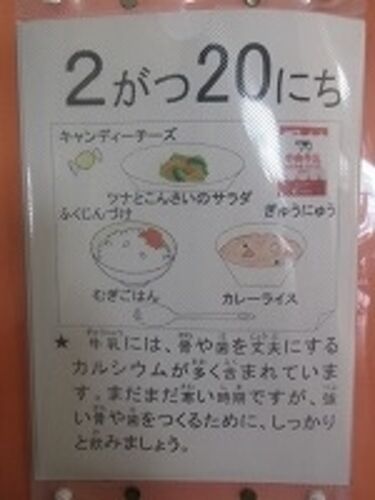 2がつ20にち
キャンディーチーズ
ツナとこんさいのサラダ
ふくじんづけ
ぎゅうにゅう
むぎごはん
カレーライス
★ 牛乳には、骨や歯を丈夫にする
カルシウムが多く含まれていま
す。まだまだ寒い時期ですが、強
い骨や歯をつくるために、しっかり
と飲みましょう。